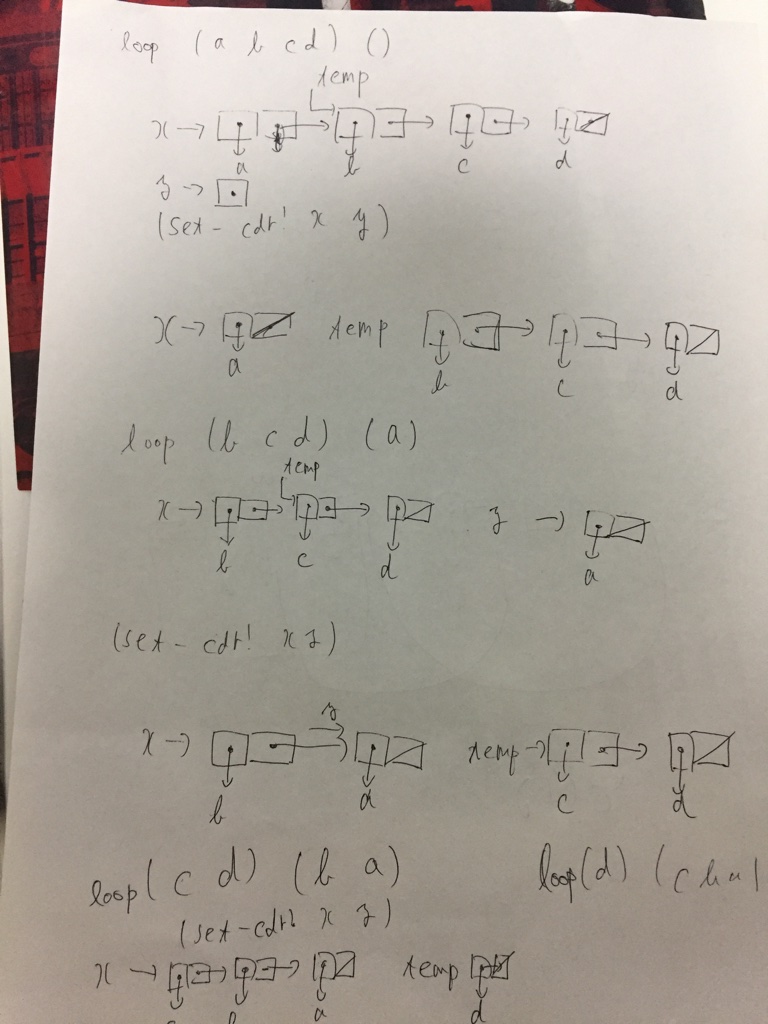 loop (a b c d) ()
temp
x → → → →
a b c d
y →
(set-cdr! x y)
x → temp → →
a b c d
loop (b c d) (a)
temp
x → → → y →
b c d a
(set-cdr! x y)
y
x → temp → →
b a c d
loop (c d) (b a) loop (d) (c b a)
(set-cdr! x y)
x → → → temp
a d